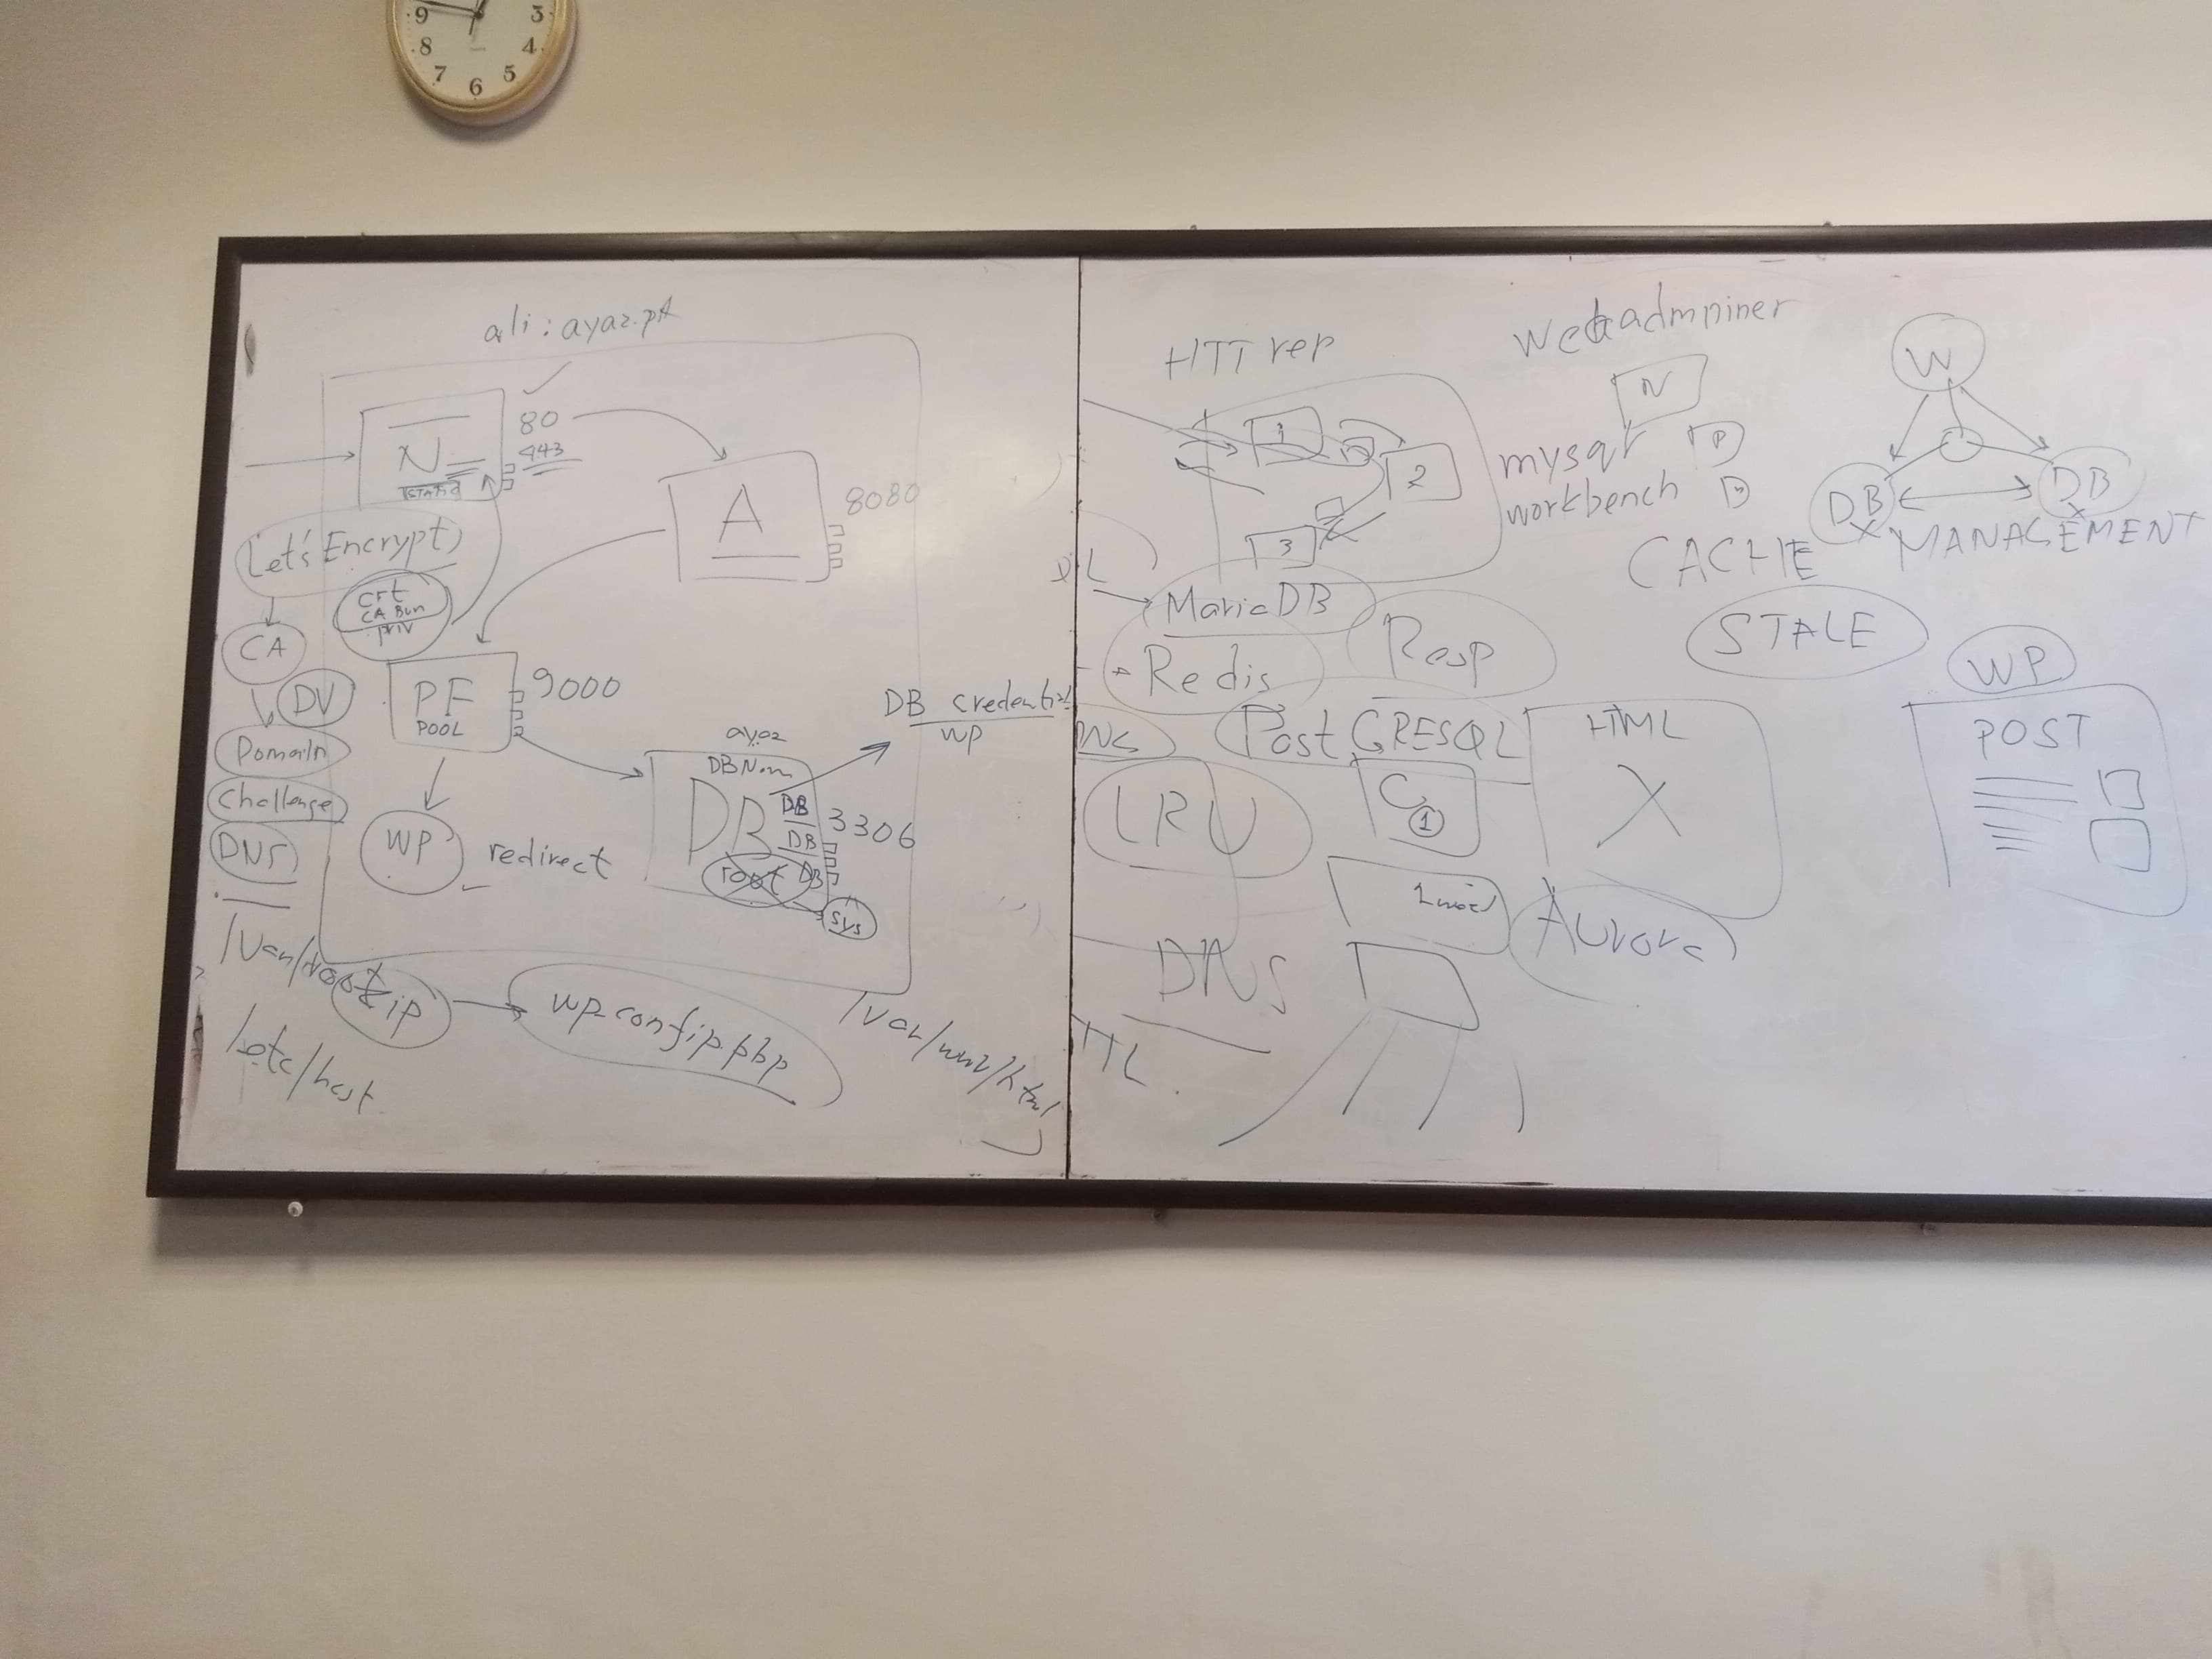 9
3
8
4
7
5
6
ali: ayaz.pk
N
STATIC
80
443
A
8080
Let's Encrypt
Crt
CA Bun
priv
CA
DV
Domain
challenge
DNS
PF
POOL
9000
WP
redirect
ayaz
DB Nam
DB
DB
DB
DB
root
sys
3306
DB credential
wp
/var/root
zip
wp-config.php
/var/www/html
/etc/host
HTT rep
1
2
3
webadmniner
N
mysql
workbench
P
D
W
DB
DB
X
X
CACHE MANAGEMENT
STALE
MariaDB
Redis
Resp
PostGRESQL
LRU
C
1
HTML
X
WP
POST
Aurora
DNS
TTL